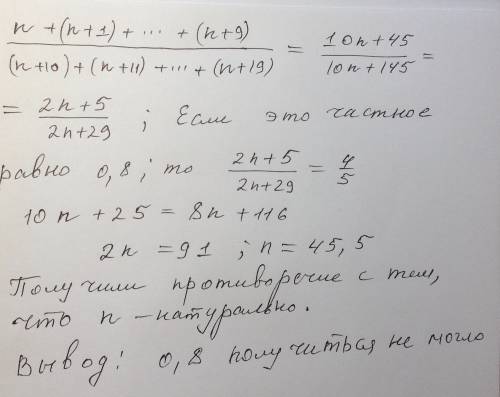 n + (n+1) + ... + (n+9) / (n+10) + (n+11) + ... + (n+19) = 10n+45 / 10n+145 =
= 2n+5 / 2n+29 ; Если это частное
равно 0,8 ; то 2n+5 / 2n+29 = 4/5
10n + 25 = 8n + 116
2n = 91 ; n = 45,5
Получили противоречие с тем,
что n - натурально.
Вывод: 0,8 получиться не могло